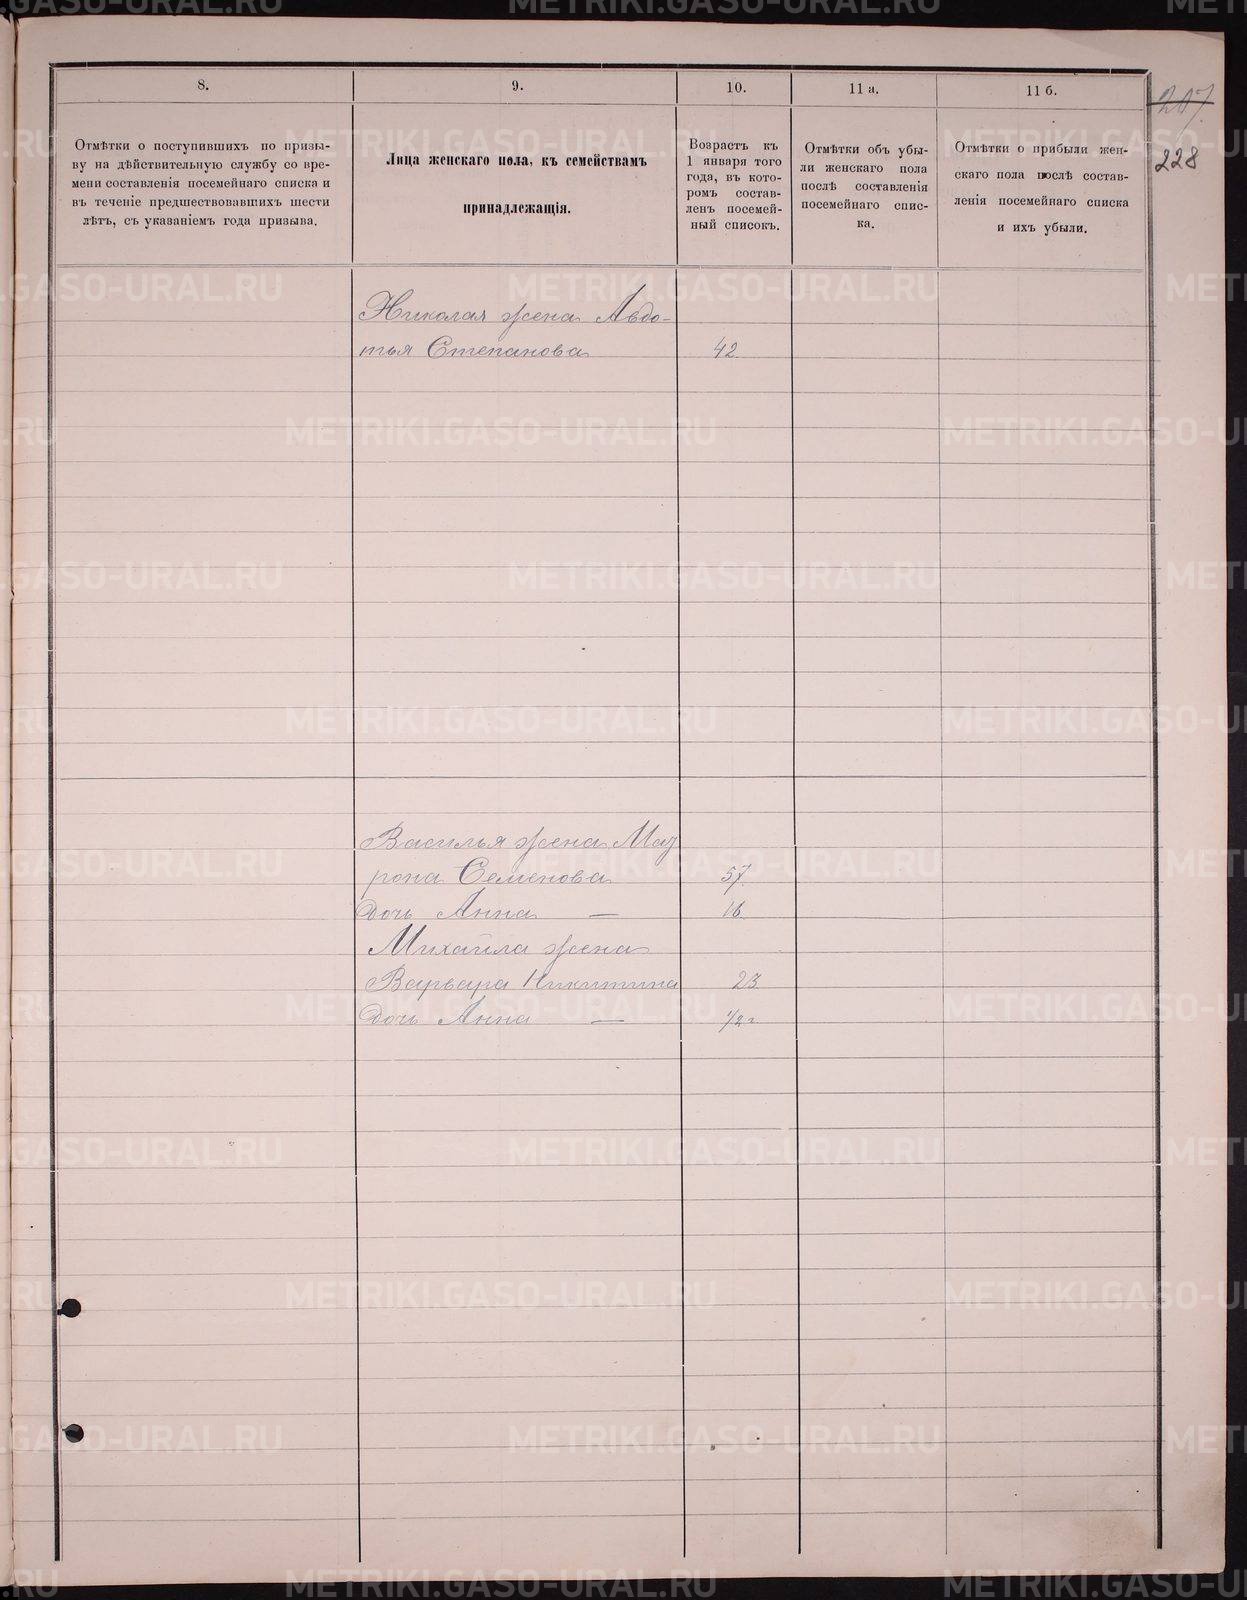 8.
9.
10.
11 а.
11 б.
207
228
Отмѣтки о поступившихъ по призы-
ву на дѣйствительную службу со вре-
мени составленія посемейнаго списка и
въ теченіе предшествовавшихъ шести
лѣтъ, съ указаніемъ года призыва.
Лица женскаго пола, къ семействамъ
принадлежащія.
Возрастъ къ
1 января того
года, въ кото-
ромъ состав-
ленъ посемей-
ный списокъ.
Отмѣтки объ убы-
ли женскаго пола
послѣ составленія
посемейнаго спис-
ка.
Отмѣтки о прибыли жен-
скаго пола послѣ состав-
ленія посемейнаго списка
и ихъ убыли.
Николая жена Авдо-
тья Степанова 42
Василья жена Мат
рона Семенова 57
дочь Анна — 16
Михайла жена
Варвара Никитина 23
дочь Анна — 1/2 г
METRIKI.GASO-URAL.RU